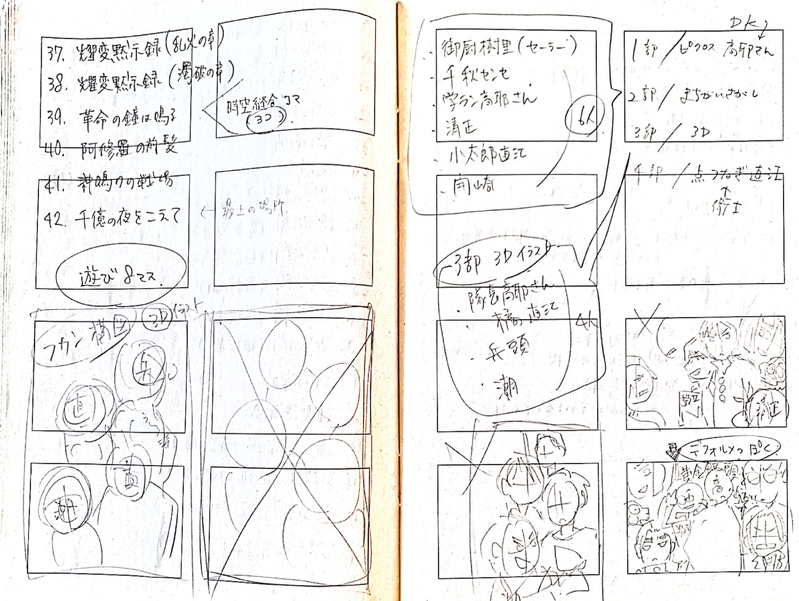 37. 燿変黙示録(乱火の章)
38. 燿変黙示録(濁破の章)
39. 革命の鐘は鳴る
40. 阿修羅の前髪
41. 神鳴りの戦場
42. 千億の夜をこえて
時空縫合コマ
(ヨコ)
← 最上の場所
遊び8マス
フカン構図
3Dイラスト
兵
直
潮
高
・御厨樹里(セーラー)
・千秋センセ
・学ラン高耶さん
・清正
・小太郎直江
・開崎
6人
3部 3Dイラスト
・隊長高耶さん
・橘の直江
・兵頭
・潮
4人
DK
1部/ピクロス 高耶さん
2部/まちがいさがし
3部/3D
4部/点つなぎ直江
↑
清正
デフォルメっぽく
高